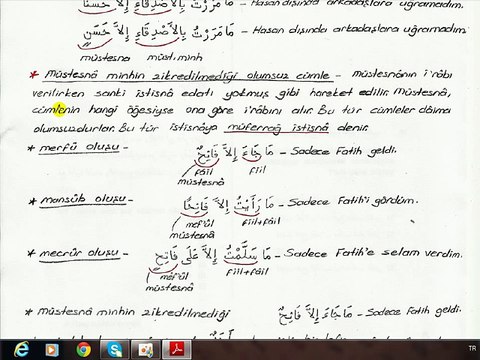 مَا مَرَرْتُ بِالْأَصْدِقَاءِ إِلَّا حَسَنًا - Hasan dışında arkadaşlara uğramadım.
مَا مَرَرْتُ بِالْأَصْدِقَاءِ إِلَّا حَسَنٍ - Hasan dışında arkadaşlara uğramadım.
müstesna müst. minh
* Müstesnâ minhin zikredilmediği olumsuz cümle - Müstesnânın i'râbı
verilirken sanki istisnâ edatı yokmuş gibi hareket edilir. Müstesnâ,
cümlenin hangi öğesiyse ona göre i'râbını alır. Bu tür cümleler dâima
olumsuzdurlar. Bu tür istisnâya müferrağ istisnâ denir.
* merfû oluşu - مَا جَاءَ إِلَّا فَاتِحٌ - Sadece Fatih geldi.
fâil fiil
müstesnâ
* mansûb oluşu - مَا رَأَيْتُ إِلَّا فَاتِحًا - Sadece Fatih'i gördüm.
mef'ûl fiil+fâil
müstesnâ
* mecrûr oluşu - مَا سَلَّمْتُ إِلَّا عَلَى فَاتِحٍ - Sadece Fatih'e selam verdim.
mef'ûl fiil+fâil
müstesnâ
* müstesnâ minhin zikredilmediği مَا جَاءَ إِلَّا فَاتِحٌ - Sadece Fatih geldi.
TR